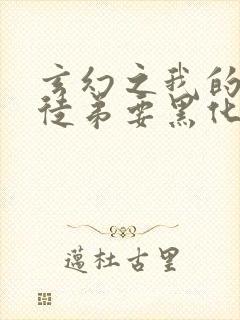 玄幻之我的
徒弟要黑化
蔼杜古里